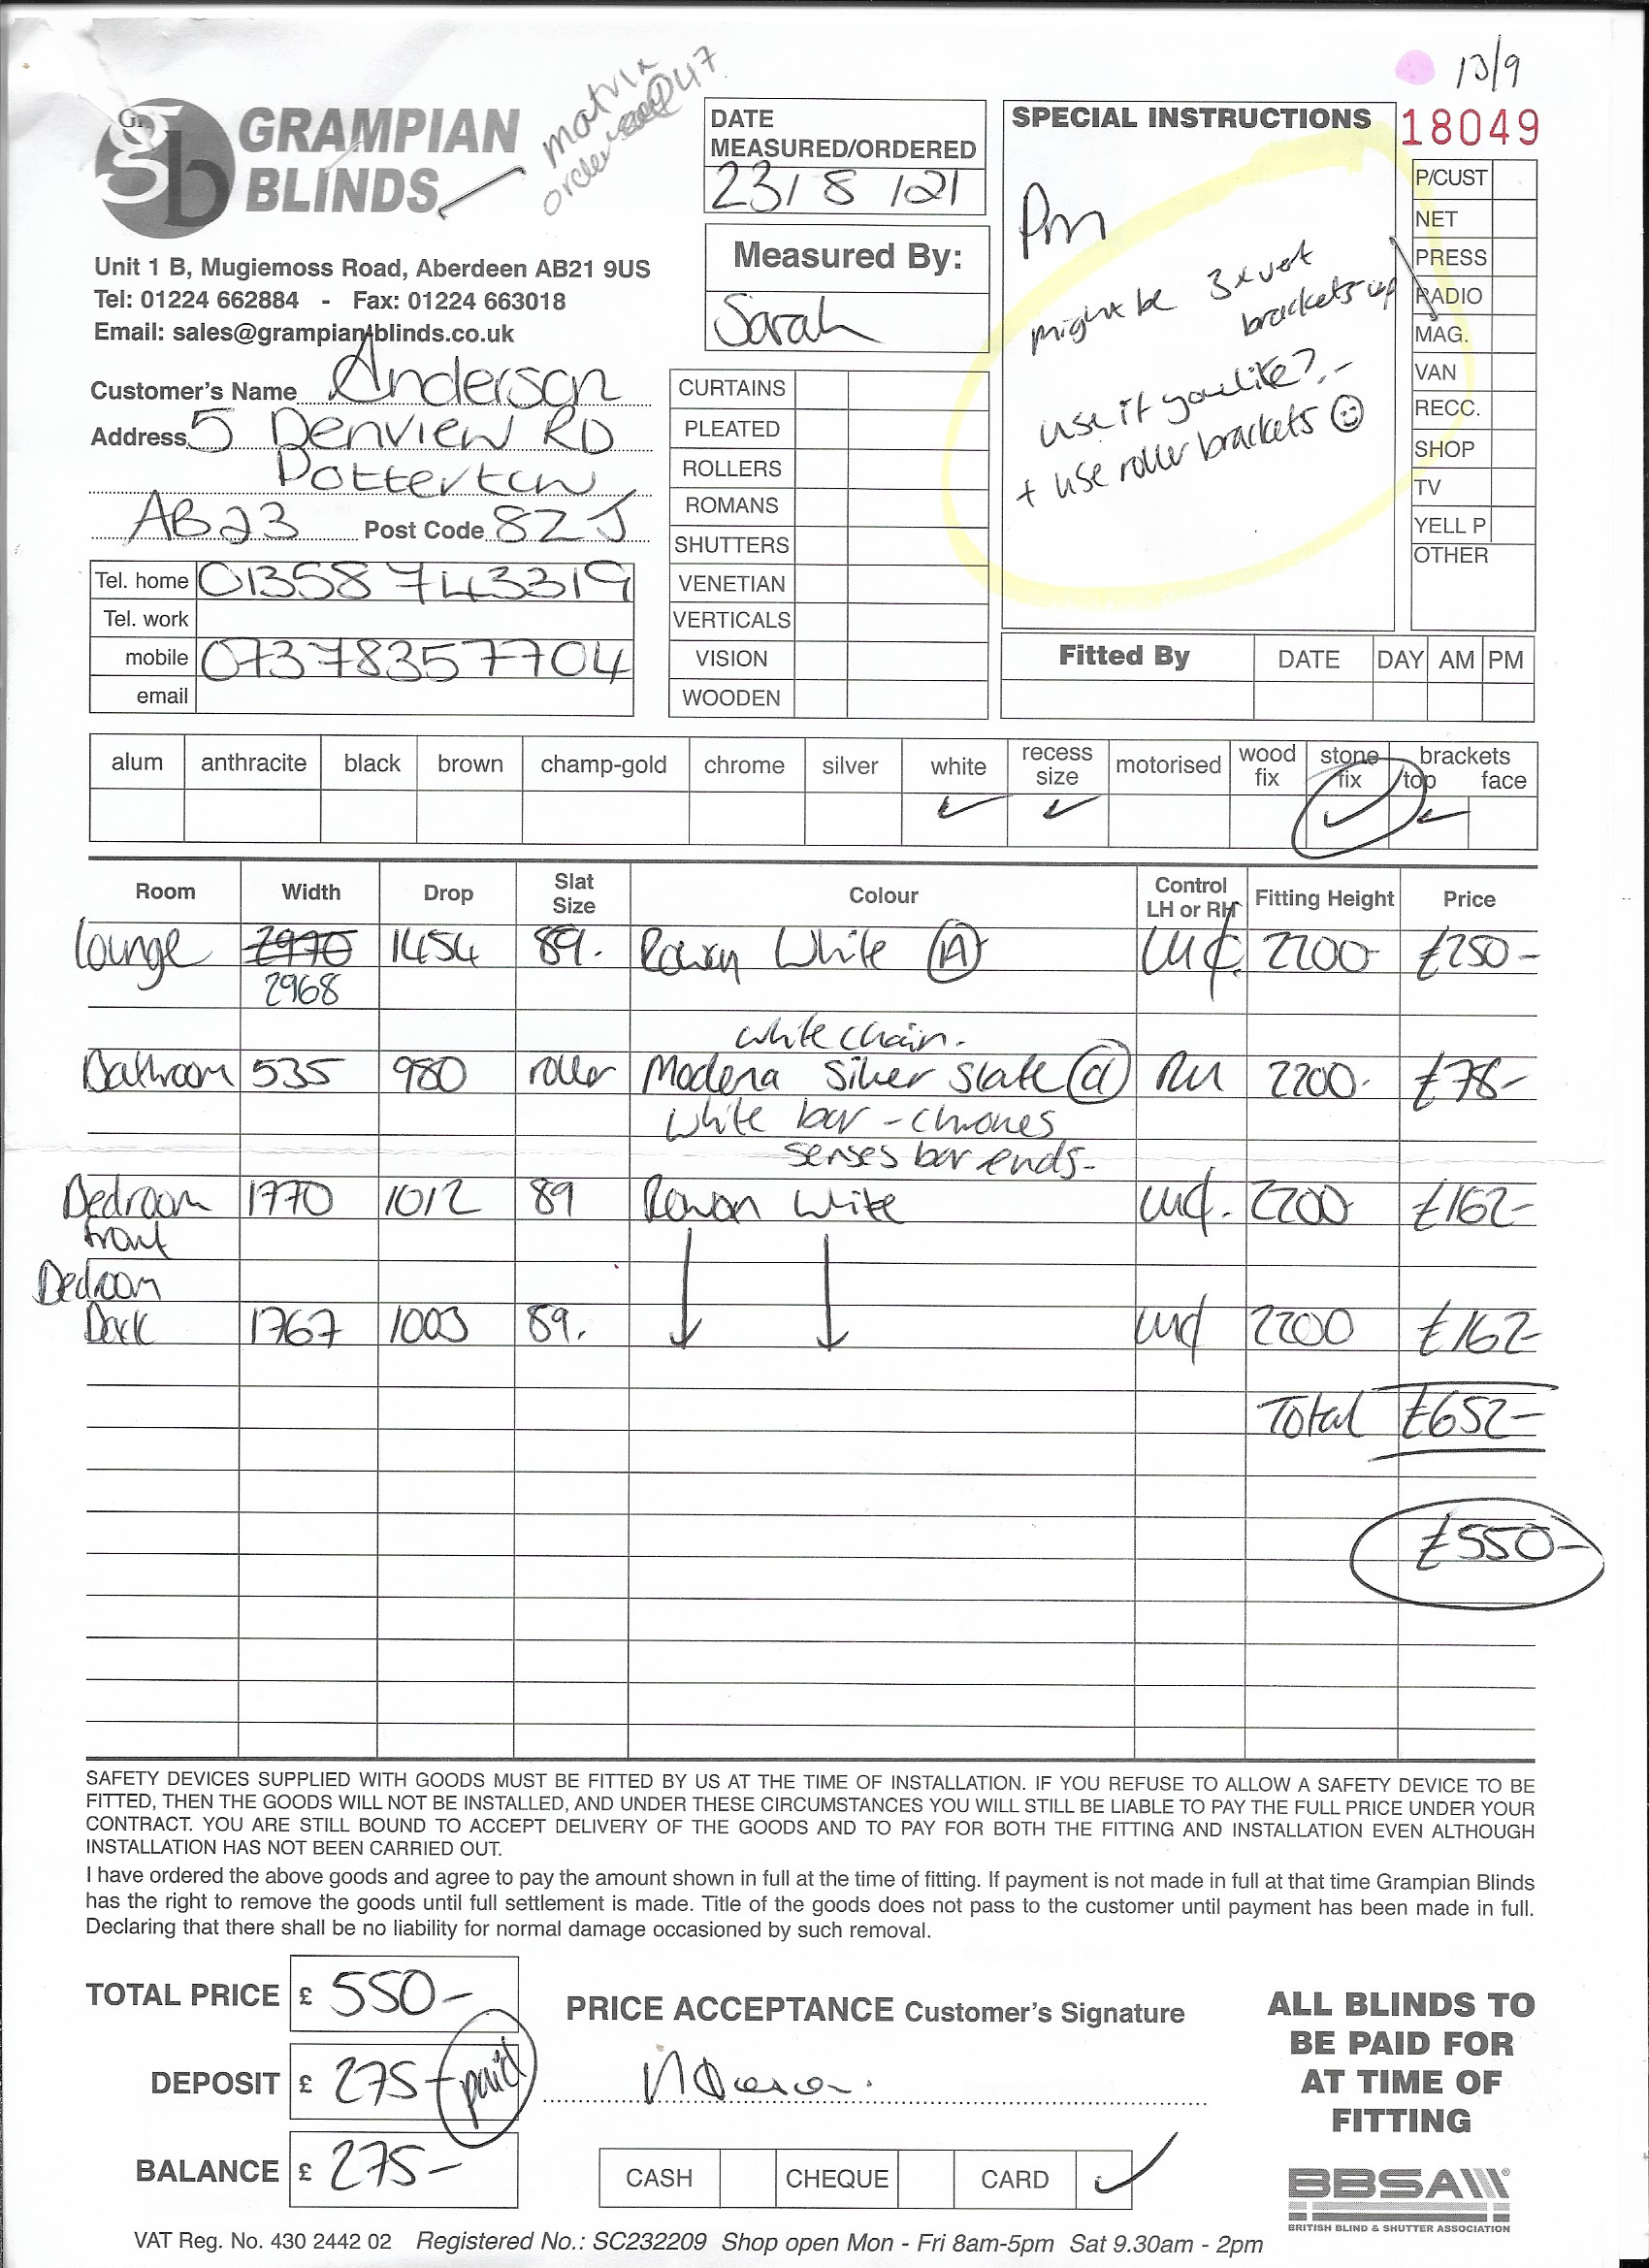 13/9
matrix
GRAMPIAN
BLINDS
Unit 1 B, Mugiemoss Road, Aberdeen AB21 9US
Tel: 01224 662884 - Fax: 01224 663018
Email: sales@grampianblinds.co.uk
Customer's Name Anderson
Address 5 Denview RD
Potterton
AB23 Post Code 8ZJ
Tel. home 01358 743319
Tel. work
mobile 07378357704
email
DATE
MEASURED/ORDERED
23/8/21
Measured By:
Sarah
CURTAINS
PLEATED
ROLLERS
ROMANS
SHUTTERS
VENETIAN
VERTICALS
VISION
WOODEN
SPECIAL INSTRUCTIONS
Pm
might be 3 x vert
brackets up
use if you like?.-
+ use roller brackets
18049
P/CUST
NET
PRESS
RADIO
MAG.
VAN
RECC.
SHOP
TV
YELL P
OTHER
Fitted By DATE DAY AM PM
alum anthracite black brown champ-gold chrome silver white recess size motorised wood fix stone fix brackets top face
Room Width Drop Slat Size Colour Control LH or RH Fitting Height Price
Lounge 2970 1454 89. Rowan White (A) 2200 £250-
2968
white chain.
Bathroom 535 980 roller Modena Silver Slate RH 2200. £78-
White bar - chromes
senses bar ends-
Bedroom 1770 1012 89 Rowan White 2200 £162-
front
Bedroom
Back 1767 1003 89. 2200 £162-
Total £652-
£550-
SAFETY DEVICES SUPPLIED WITH GOODS MUST BE FITTED BY US AT THE TIME OF INSTALLATION. IF YOU REFUSE TO ALLOW A SAFETY DEVICE TO BE
FITTED, THEN THE GOODS WILL NOT BE INSTALLED, AND UNDER THESE CIRCUMSTANCES YOU WILL STILL BE LIABLE TO PAY THE FULL PRICE UNDER YOUR
CONTRACT. YOU ARE STILL BOUND TO ACCEPT DELIVERY OF THE GOODS AND TO PAY FOR BOTH THE FITTING AND INSTALLATION EVEN ALTHOUGH
INSTALLATION HAS NOT BEEN CARRIED OUT.
I have ordered the above goods and agree to pay the amount shown in full at the time of fitting. If payment is not made in full at that time Grampian Blinds
has the right to remove the goods until full settlement is made. Title of the goods does not pass to the customer until payment has been made in full.
Declaring that there shall be no liability for normal damage occasioned by such removal.
TOTAL PRICE £ 550-
DEPOSIT £ 275- paid
BALANCE £ 275-
PRICE ACCEPTANCE Customer's Signature
CASH CHEQUE CARD
ALL BLINDS TO
BE PAID FOR
AT TIME OF
FITTING
BBSA
BRITISH BLIND & SHUTTER ASSOCIATION
VAT Reg. No. 430 2442 02 Registered No.: SC232209 Shop open Mon - Fri 8am-5pm Sat 9.30am - 2pm